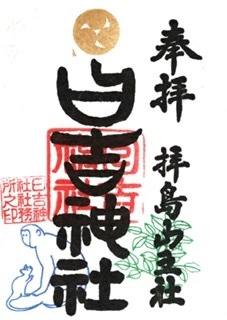 奉拝 拝島山王社
日吉神社
日吉神
社社務
所之印